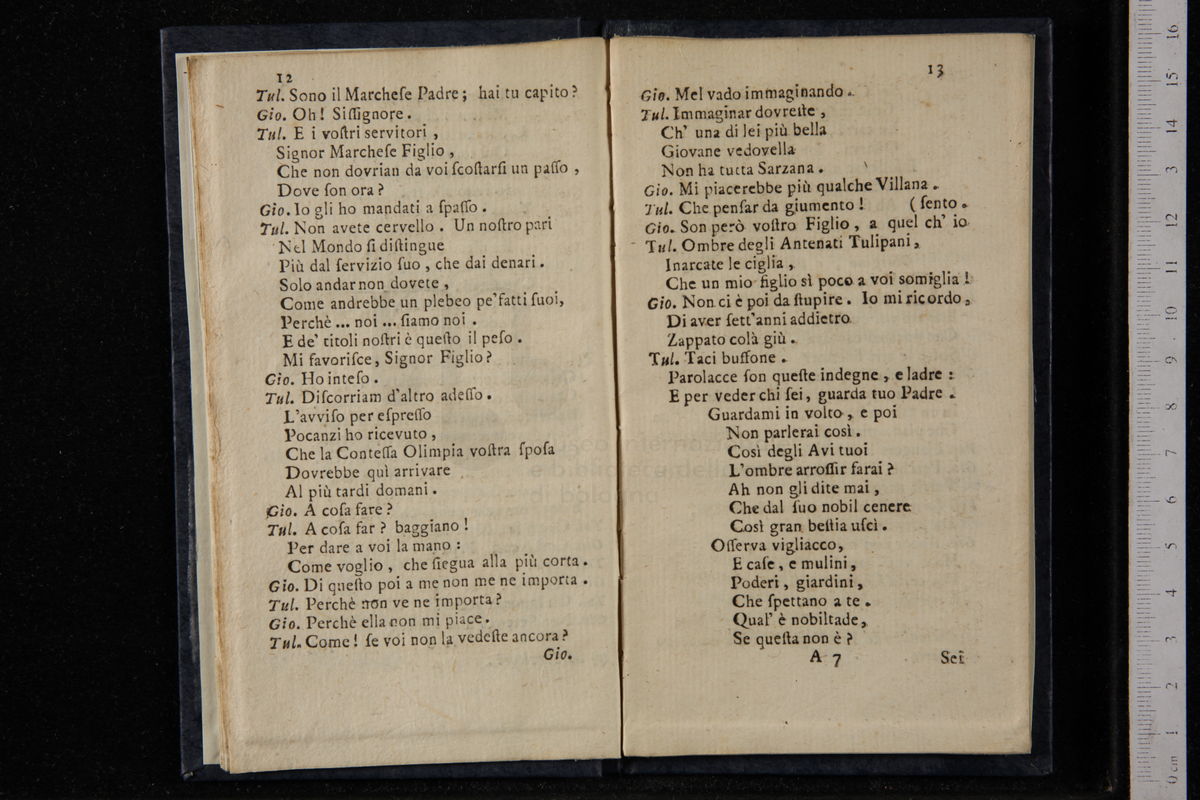 12
Tul. Sono il Marcheſe Padre; hai tu capito?
Gio. Oh! Siſſignore.
Tul. E i voſtri servitori,
Signor Marcheſe Figlio,
Che non dovrian da voi ſcoſtarſi un paſſo,
Dove ſon ora?
Gio. Io gli ho mandati a ſpaſſo.
Tul. Non avete cervello. Un noſtro pari
Nel Mondo ſi diſtingue
Più dal ſervizio ſuo, che dai denari.
Solo andar non dovete,
Come andrebbe un plebeo pe' fatti ſuoi,
Perchè ... noi ... ſiamo noi.
E de' titoli noſtri è queſto il peſo.
Mi favoriſce, Signor Figlio?
Gio. Ho inteſo.
Tul. Diſcorriam d'altro adeſſo.
L'avviſo per eſpreſſo
Pocanzi ho ricevuto,
Che la Conteſſa Olimpia voſtra ſpoſa
Dovrebbe quì arrivare
Al più tardi domani.
Gio. A coſa fare?
Tul. A coſa far? baggiano!
Per dare a voi la mano:
Come voglio, che ſiegua alla più corta.
Gio. Di queſto poi a me non me ne importa.
Tul. Perchè non ve ne importa?
Gio. Perchè ella non mi piace.
Tul. Come! ſe voi non la vedeſte ancora?
Gio.
13
Gio. Mel vado immaginando.
Tul. Immaginar dovreſte,
Ch' una di lei più bella
Giovane vedovella
Non ha tutta Sarzana.
Gio. Mi piacerebbe più qualche Villana.
Tul. Che penſar da giumento! (ſento.
Gio. Son però voſtro Figlio, a quel ch' io
Tul. Ombre degli Antenati Tulipani,
Inarcate le ciglia,
Che un mio figlio sì poco a voi somiglia!
Gio. Non ci è poi da ſtupire. Io mi ricordo,
Di aver ſett'anni addietro
Zappato colà giù.
Tul. Taci buffone.
Parolacce ſon queſte indegne, e ladre:
E per veder chi ſei, guarda tuo Padre.
Guardami in volto, e poi
Non parlerai così.
Così degli Avi tuoi
L'ombre arroſſir farai?
Ah non gli dite mai,
Che dal ſuo nobil cenere
Così gran beſtia uſcì.
Oſſerva vigliacco,
E caſe, e mulini,
Poderi, giardini,
Che ſpettano a te.
Qual' è nobiltade,
Se queſta non è?
A 7 Sei
0 cm 1 2 3 4 5 6 7 8 9 10 11 12 13 14 15 16